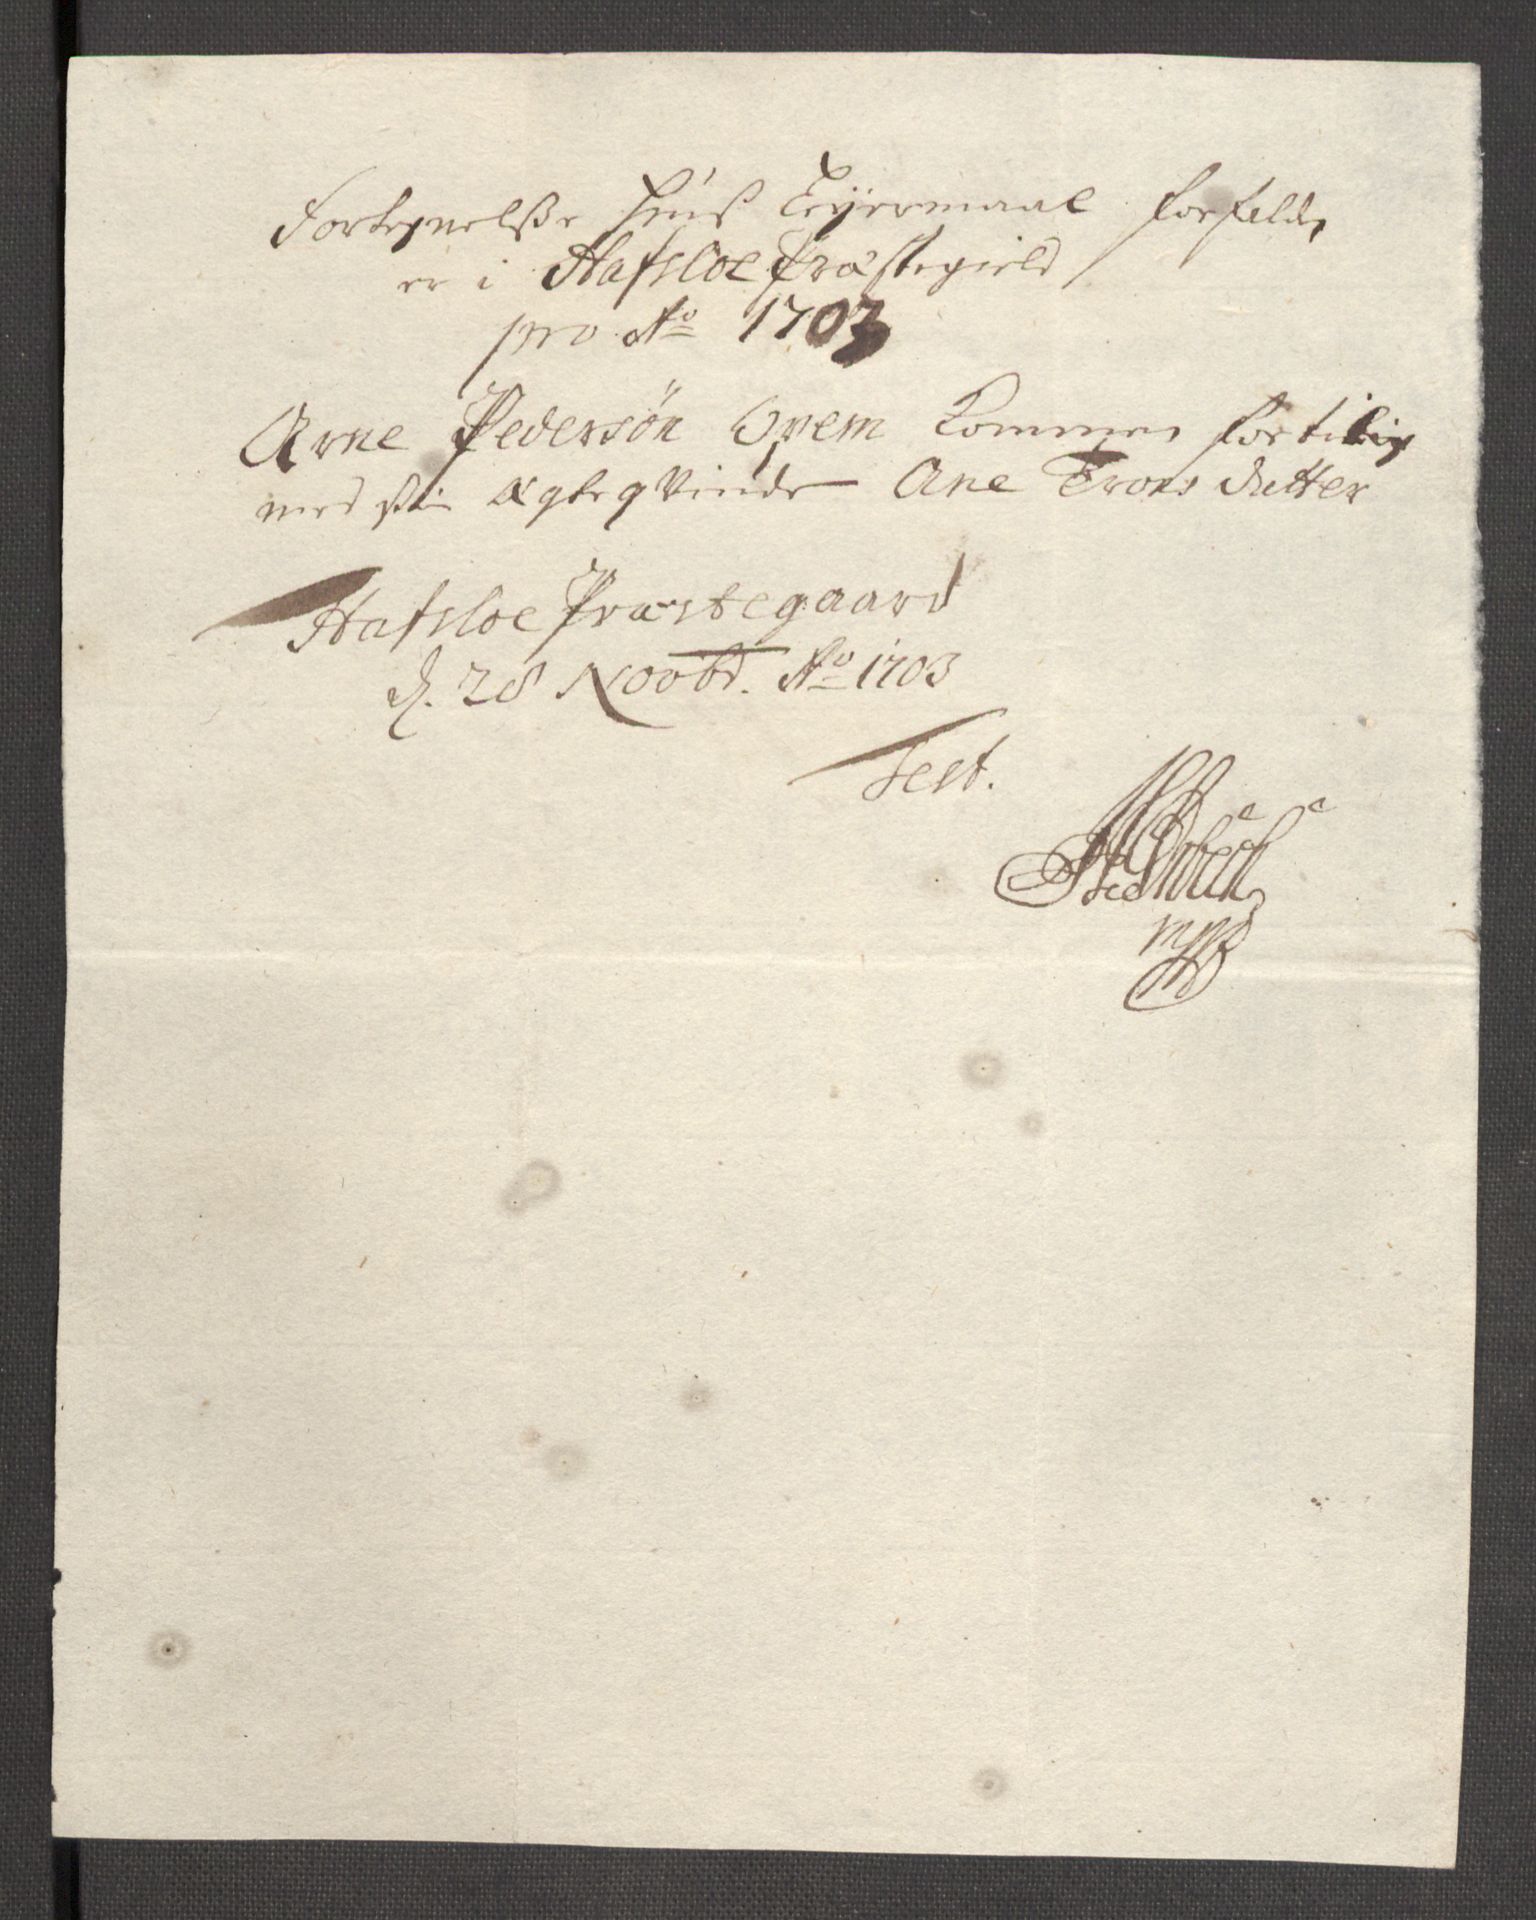 Fortegnelsse huis Leyermaal forfalden
er i Hafsloe Præstegield
pro Ao 1703
Arne Pedersøn Qvem kommen for tilig
med sin ægteqvinde Ane Trons dutter
Hafsloe Præstegaard
d. 28 Novbr. Ao 1703
Test.
mpp